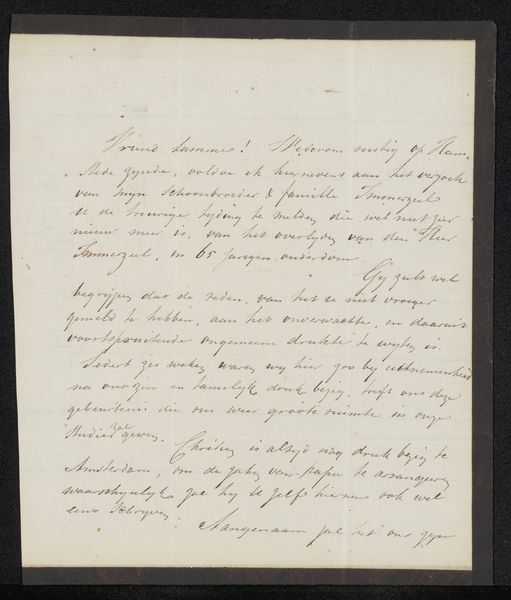 Vriend Lamme! Wederom rustig op Heem-
stede zijnde, voldoe ik hiernevens aan het verzoek
van mijn Schoonbroeder & familie Immerzeel
U de treurige tijding te melden die wel niet zeer
nieuw meer is, van het overlijden van den Heer
Immerzeel, in 65 jarigen ouderdom.
Gij zult wel
begrijpen dat de reden, van het U niet vroeger
gemeld te hebben, aan het onverwachte, en daaruit
voortspruitende ongemeen drukte te wijten is.
Sedert zes weken waren wij hier zoo bij uitnemendheid
na onzen zin en tamelijk druk bezig, treft ons deze
gebeurtenis die ons weer groote ruimte in onze
Studies zal geven.
Chrétien is altijd nog druk bezig te
Amsterdam, om de zaken van papa te arrangeren
waarschijnlijk zal hij U zelf hierover ook wel
eens Schrijven.
Aangenaam zal het ons zijn